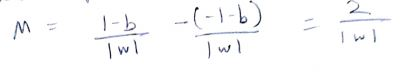 M = \frac{1-b}{|w|} - \frac{(-1-b)}{|w|} = \frac{2}{|w|}